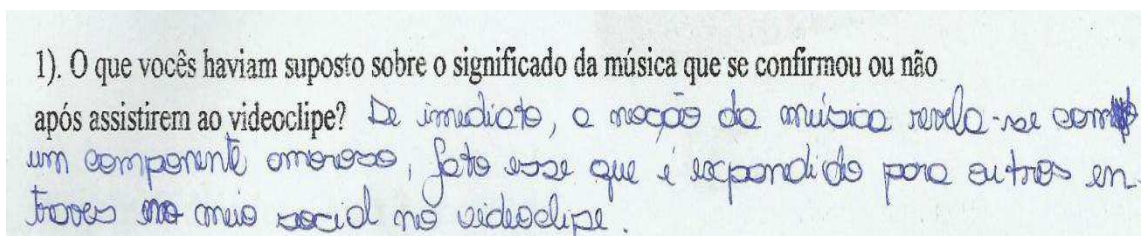 1). O que vocês haviam suposto sobre o significado da música que se confirmou ou não
após assistirem ao videoclipe? De imediato, a noção da música revela-se como
um componente amoroso, fato esse que é expandido para outros en-
traves no meio social no videoclipe.